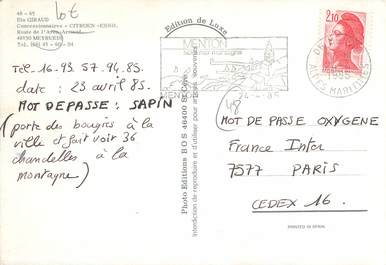 48 - 65
Ets GIRAUD
Concessionnaires - CITROEN - ESSO.
48150 MEYRUEIS
lot
Edition de Luxe
MENTON
2,10
24-4-85
ALPES MARITIMES
Tel. 16-93 57.94.85.
date : 23 avril 85.
MOT DE PASSE : SAPIN
(porte des bougies à la
ville et fait voir 36
chandelles à la
montagne)
Photo Editions B O S 46400 St Céré
Interdiction de reproduire et d'utiliser pour articles souvenirs
48
MOT DE PASSE OXYGENE
France Inter
7577 PARIS
CEDEX 16.
PRINTED IN SPAIN